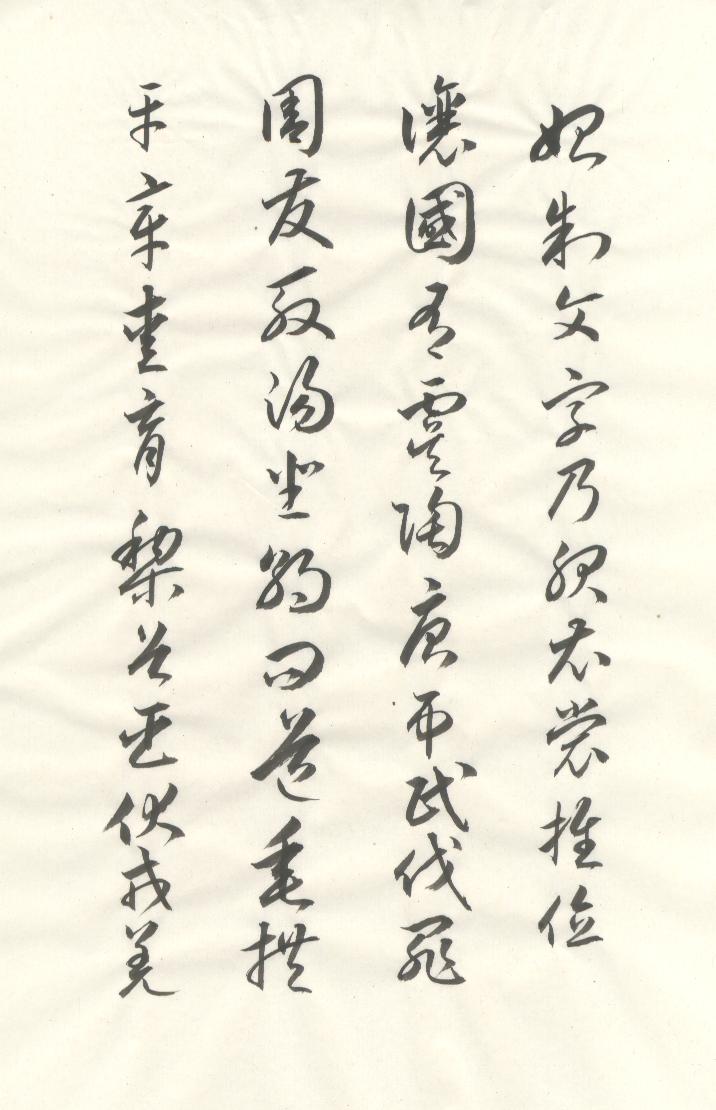 始制文字乃服衣裳推位
讓國有虞陶唐弔民伐罪
周發殷湯坐朝問道垂拱
平章愛育黎首臣伏戎羌